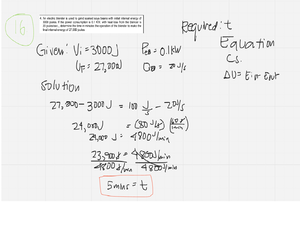 16
4. An electric blender is used to grind roasted soya beans with initial internal energy of
3000 joules. If the power consumption is 0.1 KW, with heat loss from the blender is
20 joules/sec., determine the time in minutes the operation of the blender to make the
final internal energy of 27,000 joules.
Required: t
Given: Vi = 3000J
Pₑₙₜ = 0.1kW
Equation
CS.
ΔU = Ein - Eout
Solution
27,000 - 3000J = 100 J/s - 20J/s
24,000J = (80 J/s)
24,000 J = 4800J/min
4800J/min
5 mins = t